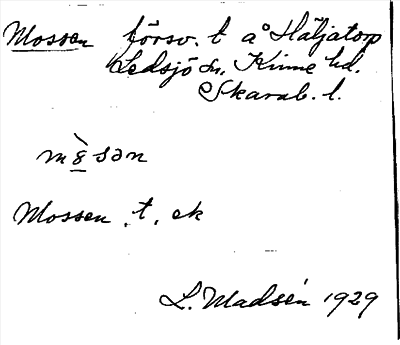 Mossen försv. t å Häljatorp
Ledsjö sn. Kinne hd.
Skarab. l.
m8̀sən
Mossen, t, ek
L. Madsén 1929